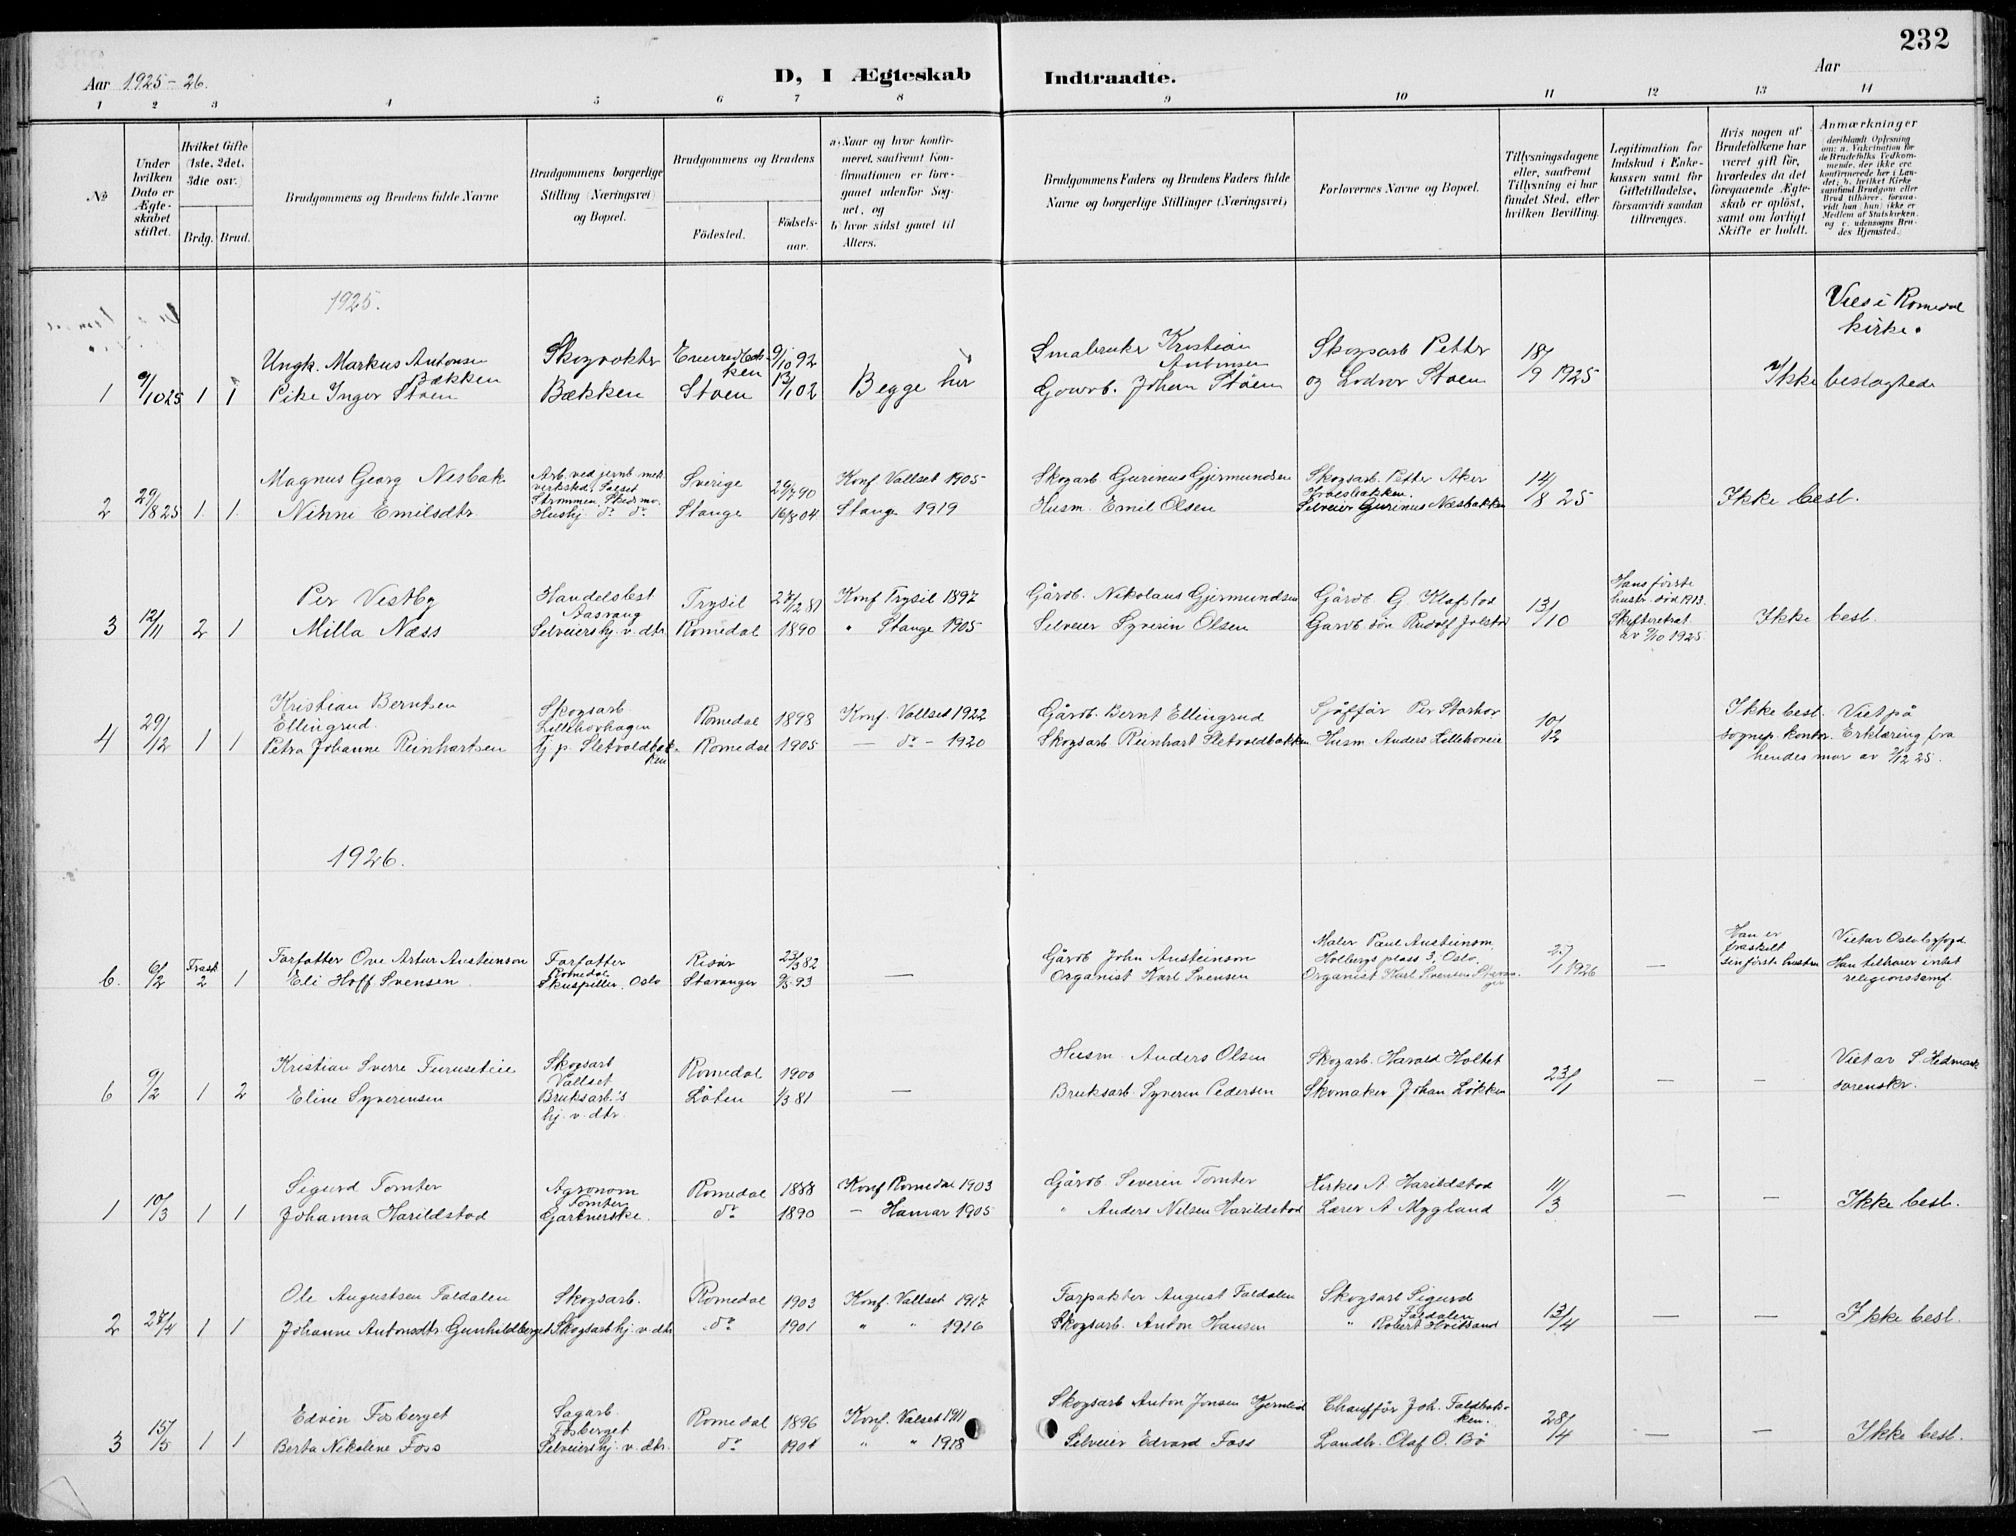 232
Aar 1925-26.
D, I Ægteskab Indtraadte.
Aar
1 2 3 4 5 6 7 8 9 10 11 12 13 14
No
Under hvilken Dato er Ægteskabet stiftet.
Hvilket Gifte (1ste, 2det, 3die osv.)
Brdg. Brud.
Brudgommens og Brudens fulde Navne
Brudgommens borgerlige Stilling (Næringsvei) og Bopæl.
Brudgommens og Brudens
Födested. Födselsaar.
a. Naar og hvor konfirmeret, saafremt Konfirmationen er foregaaet udenfor Sognet, og
b. hvor sidst gaaet til Alters.
Brudgommens Faders og Brudens Faders fulde Navne og borgerlige Stillinger (Næringsvei)
Forlovernes Navne og Bopæl.
Tillysningsdagene eller, saafremt Tillysning ei har fundet Sted, efter hvilken Bevilling.
Legitimation for Indskud i Enkekassen samt for Giftetilladelse, forsaavidt saadan tiltrænges.
Hvis nogen af Brudefolkene har været gift för, hvorledes da det foregaaende Ægteskab er oplöst, samt om lovligt Skifte er holdt.
Anmærkninger (deriblandt Oplysning om: a. Vakcination for de Brudefolks Vedkommende, der ikke ere konfirmerede her i Landet; b. hvilket Kirkesamfund Brudgom eller Brud tilhörer, forsaavidt han (hun) ikke er Medlem af Statskirken, og c. udensogns Brudes Hjemsted.)
1925.
Vies i Romedal kirke.
Ungk. Markus Antonsen Bækken Skogvokter 9/10 92 Smabruker Kristian Antonsen Skogsarb Petter 18/
1 9/10 25 1 1 Pike Inger Støen Bækken Støen 13/1 02 Begge her Gaardb. Johan Støen og Lodver Støen 9 1925 Ikke beslægtede
Magnus Georg Nesbak Arb. ved jernb. mek. verksted Sverige 29/7 90 Konf Vallset 1905 Skogarb Gurinus Gjermundsen Skogsarb. Petter Aker 14/
2 29/8 25 1 1 Emilsdtr. Strømmen, Skedsmo. Hushj. do do Stange 16/8 04 Stange 1919 Husm. Emil Olsen Selveier Gurinus Næsbakken 8 25 Ikke besl.
Per Vestby Handelsbest Aasvang Trysil 27/12 81 Konf Trysil 1897 Gårdb. Nikolaus Gjermundsen Gårdb. G. Klafstad 13/ Hans første hustr. død 1913.
3 12/11 2 1 Milla Næss Selveiershj. v. dtr. Romedal 1890 " Stange 1905 Selveier Syverin Olsen Gardb søn Rudolf 10 Skifteretsat av 9/10 1925. Ikke besl.
Kristian Berntsen Ellingsrud Skogsarb. Lillehovhagen Romedal 1898 Konf. Vallset 1922 Gårdb. Bernt Ellingrud Sjåffør Per Starhov 10/ Ikke besl. Viet på
4 29/12 1 1 Petra Johanne Reinhartsen Tj. p. Sletvoldbakken Romedal 1905 – do – 1920 Skogsarb Reinhart Sletvoldbakken Husm Anders Lillehoveie 12 sognep. kontor. Erklæring fra
hendes mor av 7/12 25.
1926.
Forfatter Ove Artur Ansteinson Forfatter Romedal Risör 23/3 82 Gårdb John Ansteinson Maler Paul Ansteinson, Holbergs plass 3, Oslo. 27/ Han er fraskilt sin første hustru Viet av Oslo byfogd
6. 6/2 Frask 2 1 Eli Hoff Svensen. Skuespiller, Oslo Stavanger 9/3 93 – Organist Karl Svensen Organist Karl Svensen Stavanger 1 1926 – Han tilhører intet religionssamf.
Kristian Sverre Furuseteie Skogsarb Vallset Romedal 1900 Husm. Anders Olsen Skogarb. Harald Holtet 23/ Viet av S. Hedmark
6 9/2 1 2 Eline Syverensen Bruksarb.'s hj. v. dtr. Löten 1/3 81 – Bruksarb Syverin Pedersen Skomaker Johan Løkken 1 – – sorenskr.
Sigurd Tomter Agronom Tomter Romedal 1888 Konf Romedal 1903 Gårdb. Severin Tomter Kirkes A Harildstad 11/
1 10/3 1 1 Johanna Harildstad Gartnerske. do 1890 – Hamar 1905 " Anders Nilsen Harildstad Lærer A Mygland 3 – – Ikke besl.
Ole Augustsen Faldalen Skogsarb. Romedal 1903 Konf. Vallset 1917 Forpakter August Faldalen Skogsarb Sigurd Faldalen 13/
2 27/4 1 1 Johanne Antonsdtr. Gunhildberget Skogsarb hj. v. dtr do 1901 " " 1916 Skogsarb. Anton Hansen " Robert Hvitsand 4 – – Ikke besl.
Edvin Fosberget Sagarb. Fosberget Romedal 1896 Konf. Valset 1911 Skogsarb Anton Jonsen Chauffør Joh. Faldbakken. 28/
3 15/5 1 1 Berta Nikoline Foss Selveiershj. v. dtr. do 1904 " " 1918 Selveier Edvard Foss Landh. Olaf O. Bø 4 – – Ikke besl.